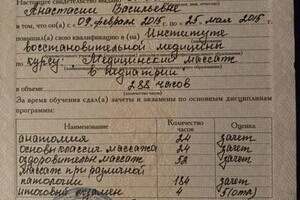 Настоящее свидетельство выдано
Анастасии Васильевне
в том, что он(а) с 09 февраля 2015г. по 25 мая 2015
повышал(а) свою квалификацию в (на) Институте
восстановительной медицины
по курсу: Медицинский массаж
в педиатрии
288 часов
За время обучения сдал(а) зачеты и экзамены по основным дисциплинам
программы:
Наименование Количество часов Оценка
анатомия 24 зачет
основы классич массажа 24 зачет
оздоровительн массаж 52 зачет
массаж при различной
патологии 184 зачет
итоговый экзамен 4 5(отл)